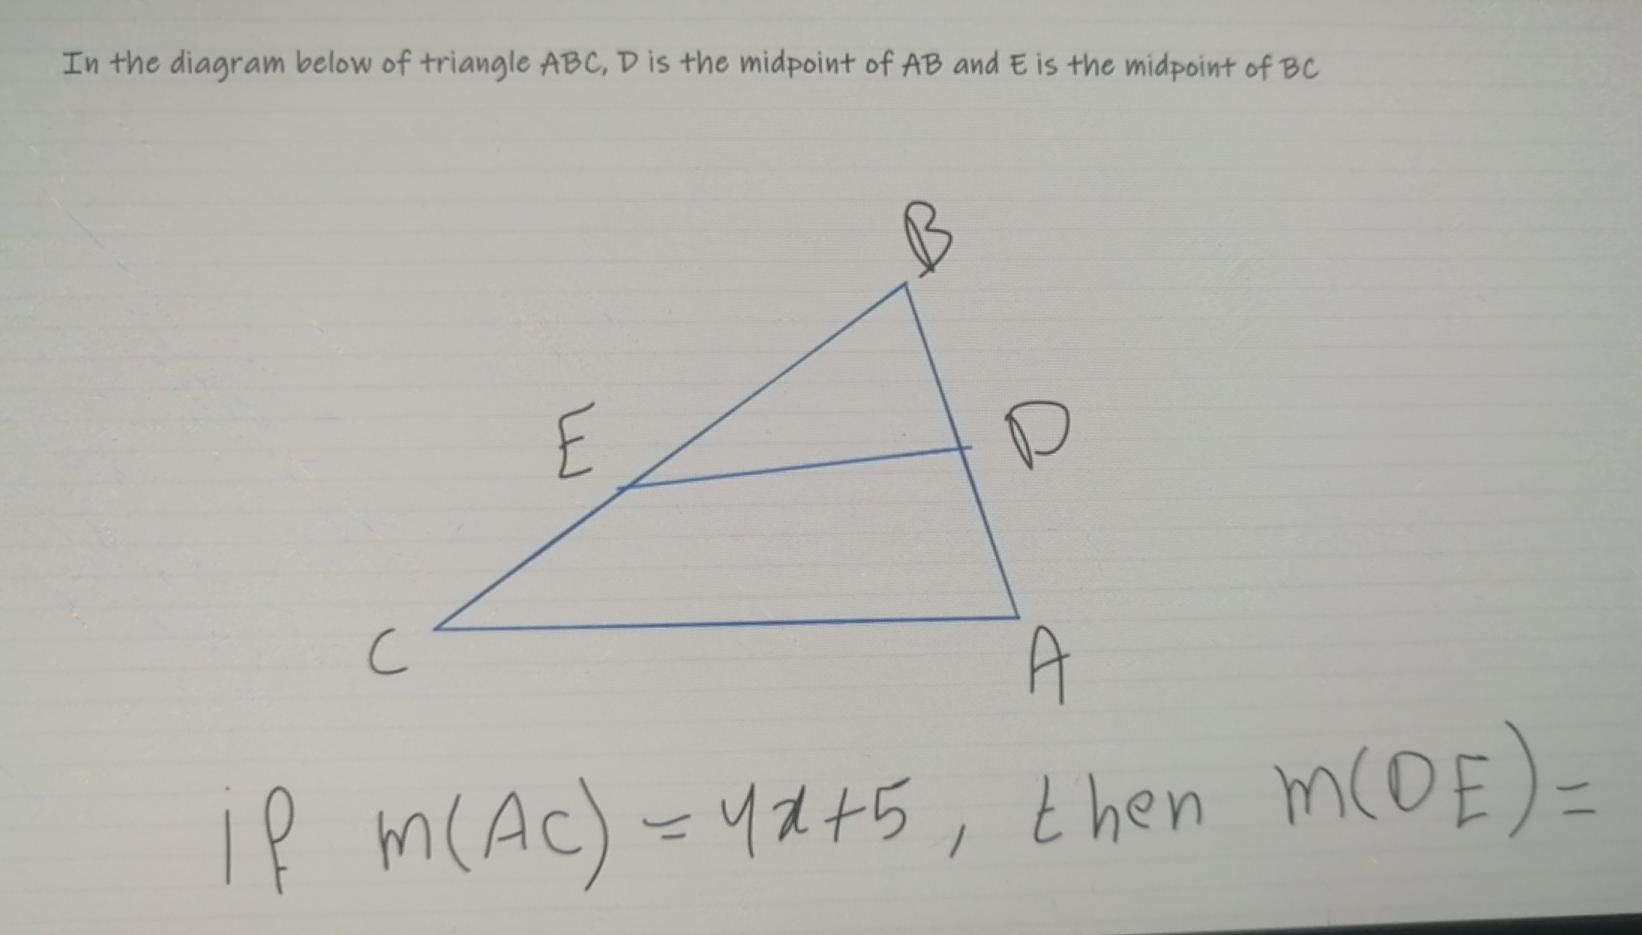 In the diagram below of triangle ABC, D is the midpoint of AB and E is the midpoint of BC
B
E
D
C
A
if m(AC) = 4x+5, then m(DE) =